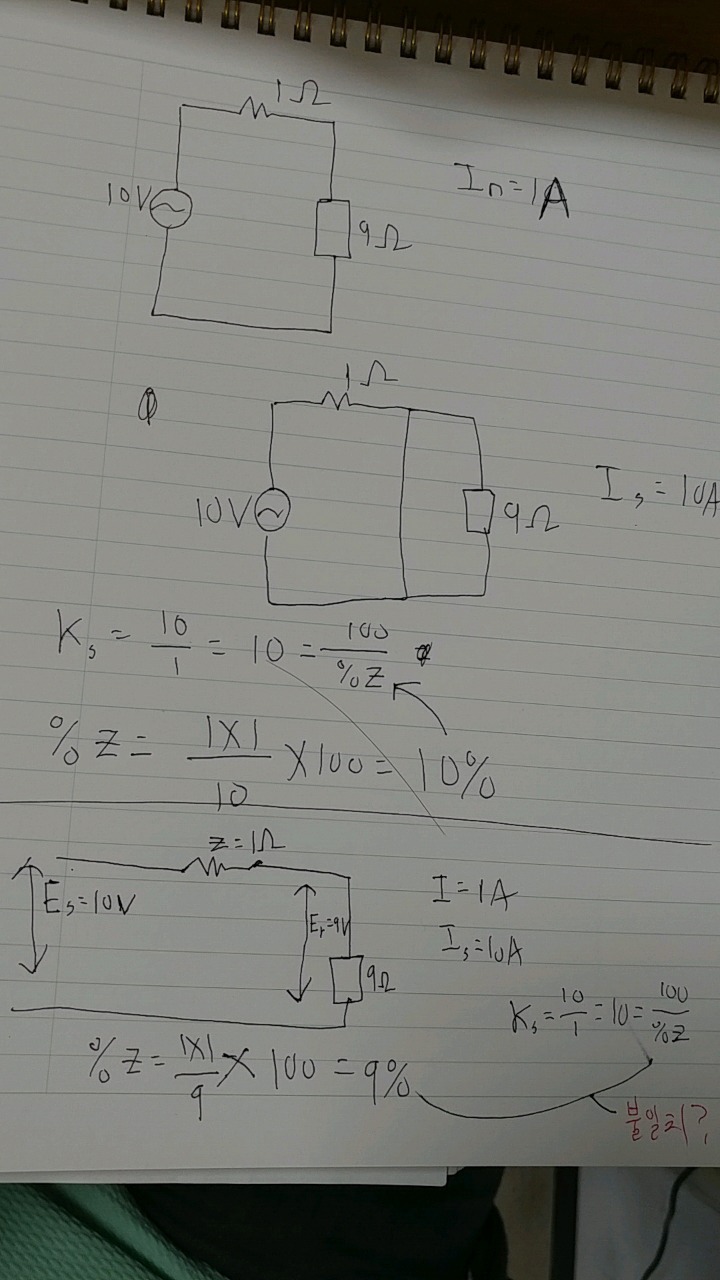 1Ω
10V
9Ω
In=1A
1Ω
10V
9Ω
Is=10A
Ks = 10/1 = 10 = 100/%Z
%Z = 1X1/10 X100 = 10%
z=1Ω
Es=10V
Er=9V
9Ω
I=1A
Is=10A
Ks=10/1=10=100/%Z
%Z=1X1/9 X 100 = 9%
불일치?